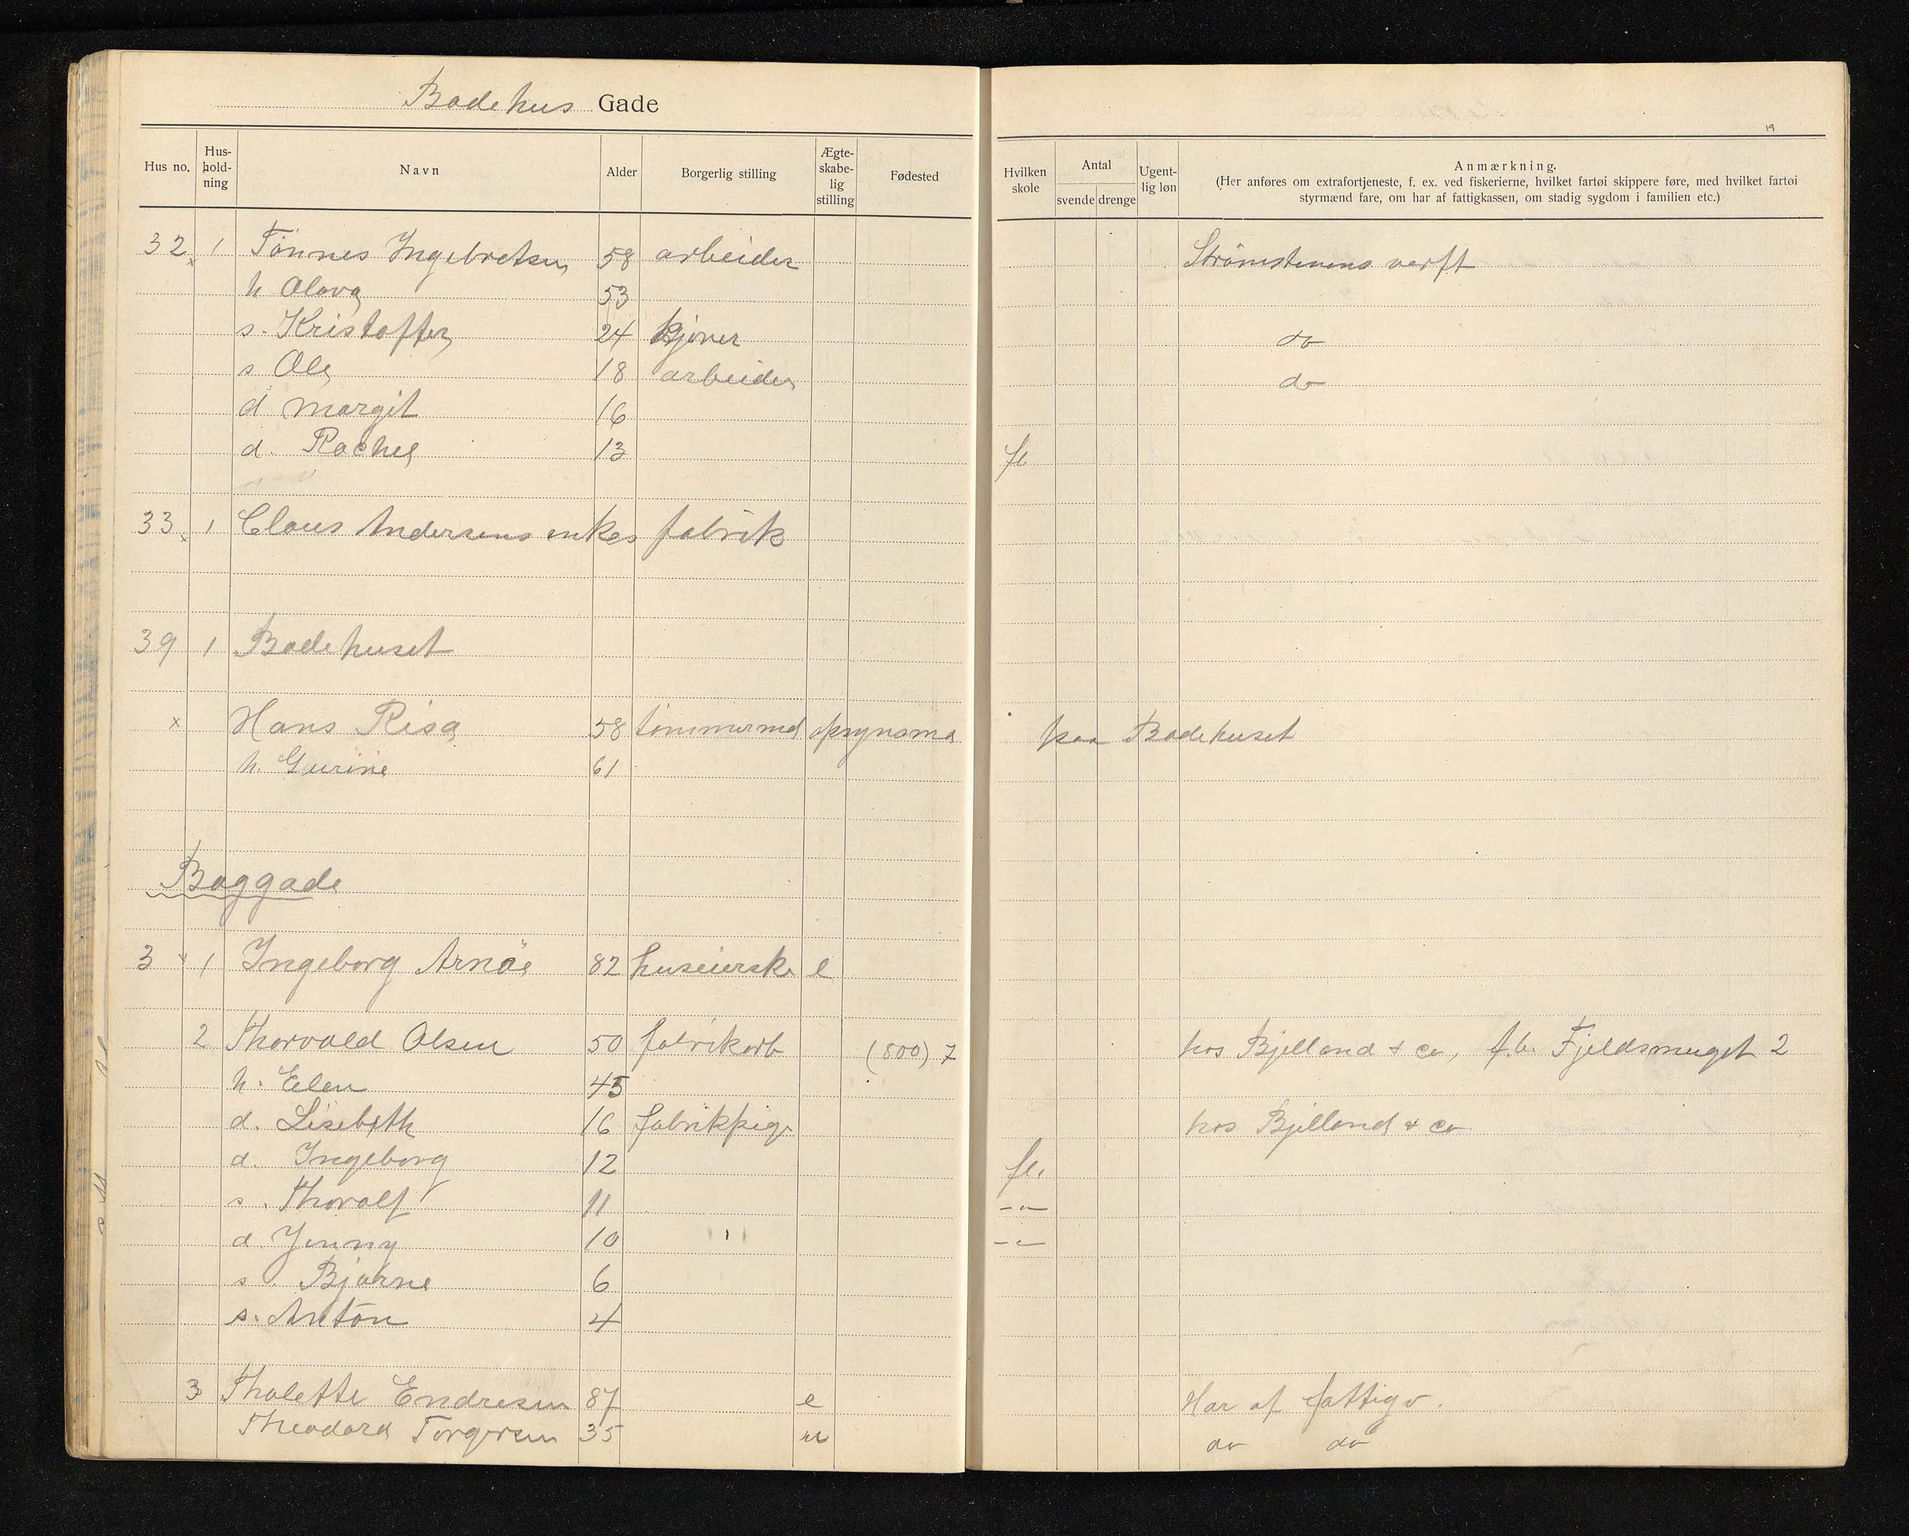 Badehus Gade
19
Hus no. Hus-hold-ning Navn Alder Borgerlig stilling Ægte-skabe-lig stilling Fødested Hvilken skole Antal svende drenge Ugent-lig løn Anmærkning.
(Her anføres om extrafortjeneste, f. ex. ved fiskerierne, hvilket fartøi skippere føre, med hvilket fartøi
styrmænd fare, om har af fattigkassen, om stadig sygdom i familien etc.)
32 x 1 Tønnes Ingebretsen 58 arbeider Strømstenens verft
h Olava 53
s. Kristoffer 24 do
s Ole 18 arbeider do
d Margit 16
d. Rachel 13 fl
33 x 1 Claus Andersens enkes fabrik
39 1 Badehuset
x Hans Risa 58 tømmermd opsynsma paa Badehuset
h. Gurine 61
Baggade
3 x 1 Ingeborg Arnøe 82 huseierske e
2 Thorvald Olsen 50 fabrikarb (800) 7 hos Bjelland & co, f.b. Fjeldsmuget 2
h. Elen 45
d. Lisebeth 16 fabrikpige hos Bjelland & co
d. Ingeborg 12 fl.
s. Thoralf 11 -"-
d. Jenny 10 -"-
s. Bjarne 6
s. Anton 4
3 Thalette Endresen 87 e Har af fattigv.
Theodora Torgersen 35 u do do